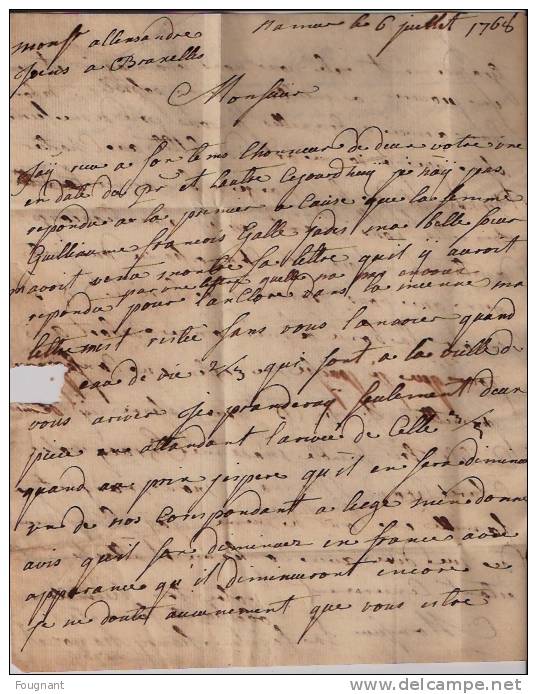 Namur le 6 juillet 1768
Monsr allexsandre
a Bruxelles
Monsieur
Jay recu a son tems lhonneur de deux votre une
en date du pr et lautre cejourdhuy je nay pas
repondu a la premier a cause que la femme
Guilleaume francois Galle ma belle soeur
mavoit venu sa lettre qu'il y auroit
repondu par une lettre quelle ma pas envoiez
pour lanclore dans la mienne ma
lettre mest restée sans vous lanvoier quand
eau de vie 2/3 qui sont a la veille d
vous ariver je pranderay seulement deux
piece en attandant larivée de Celle 3/5
quand au prix jespere qu'il en sera diminu
un de nos corespondant a liege me donne
avis quil son diminuez en france avec
apparance qu'il diminuront encore
je ne doute aucunement que vous
Fougnant
delcampe.net